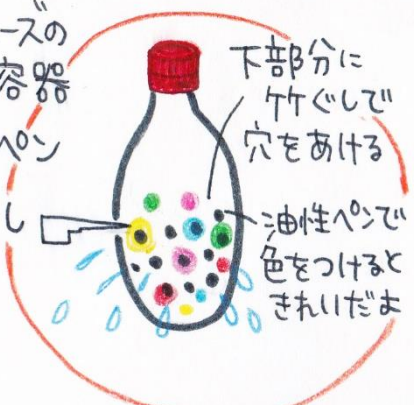 ーズの
容器
ペン
し
下部分に
竹ぐしで
穴をあける
油性ペンで
色をつけると
きれいだよ